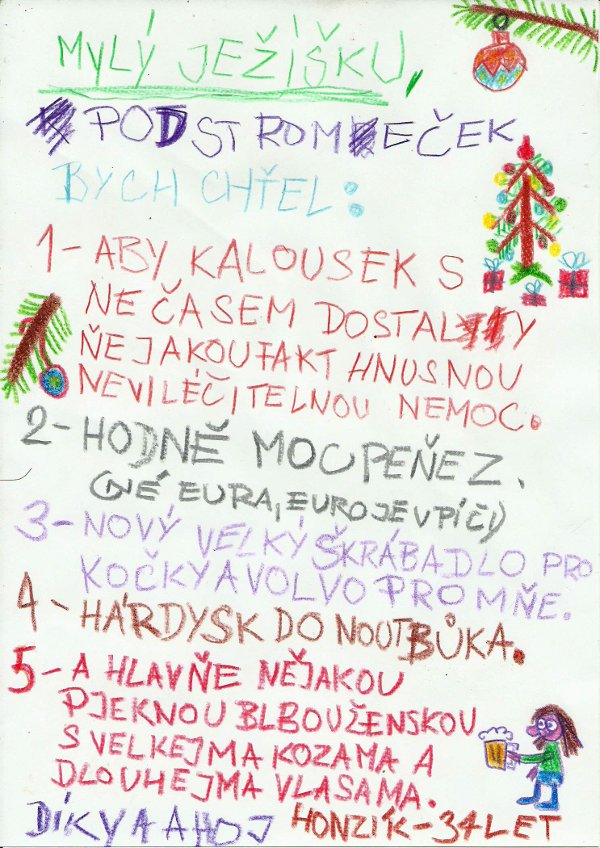 MYLÝ JEŽÍŠKU,
PODSTROMEČEK
BYCH CHŤEL:
1- ABY KALOUSEK S
NEČASEM DOSTALY
ŇEJAKOUFAKT HNUSNOU
NEVILÉČITELNOU NEMOC.
2- HODNĚ MOCPEŇEZ.
(NÉ EURA, EUROJEVPÍČI)
3- NOVÝ VELKÝ ŠKRÁBADLO PRO
KOČKYAVOLVOPROMŇE.
4- HÁRDYSK DO NOUTBŮKA.
5- A HLAVŇE NĚJAKOU
PJEKNOUBLBOUŽENSKOU
SVELKEJMAKOZAMA A
DLOUHEJMA VLASAMA.
DÍKYAAHOJ HONZÍK-34LET